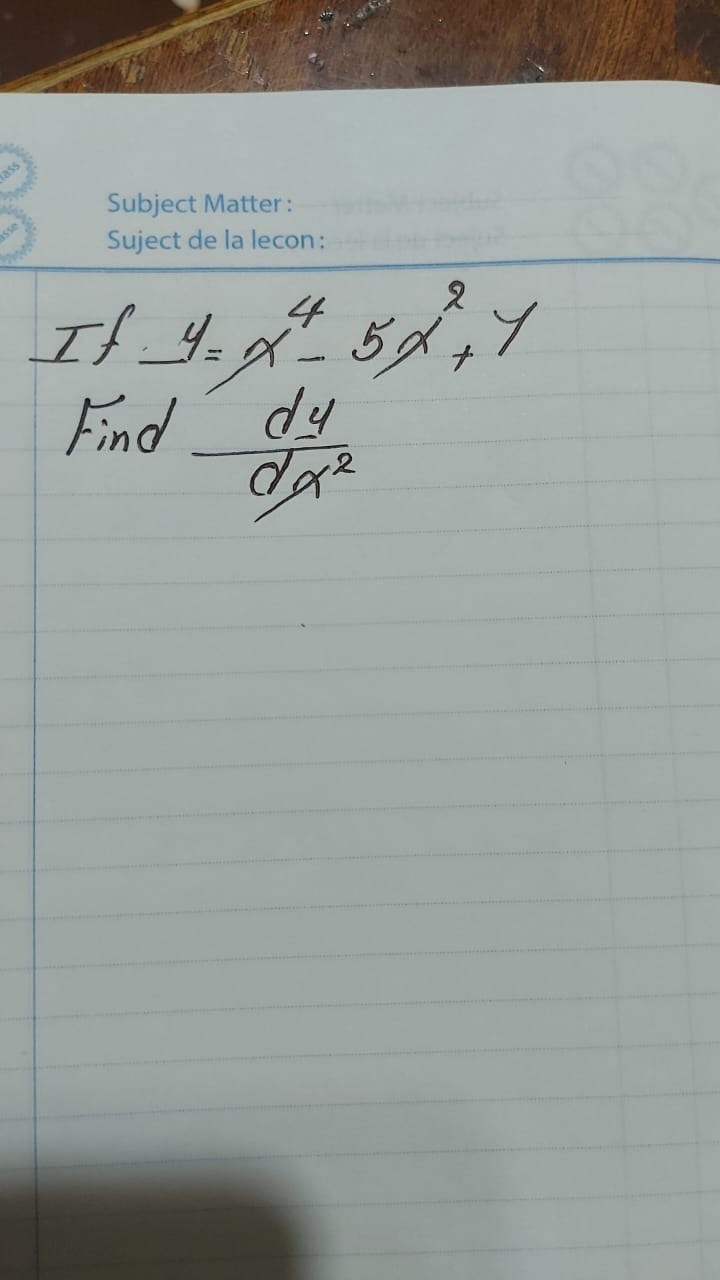 Subject Matter :
Suject de la lecon :
If y = x⁴ - 5x² + y
Find dy
dx²